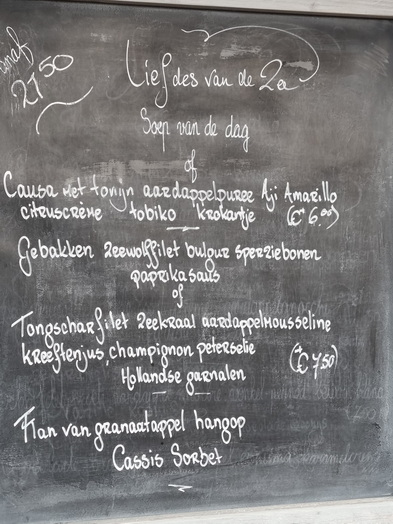 vanaf
27 50
Liefdes van de Zee
Soep van de dag
of
Causa met tonijn aardappelpuree Aji Amarillo
citruscrème tobiko krokantje (+€ 6.00)
Gebakken zeewolffilet bulgur sperziebonen
paprikasaus
of
Tongscharfilet zeekraal aardappelmousseline
kreeftenjus, champignon peterselie (+€ 7,50)
Hollandse garnalen
Flan van granaatappel hangop
Cassis Sorbet